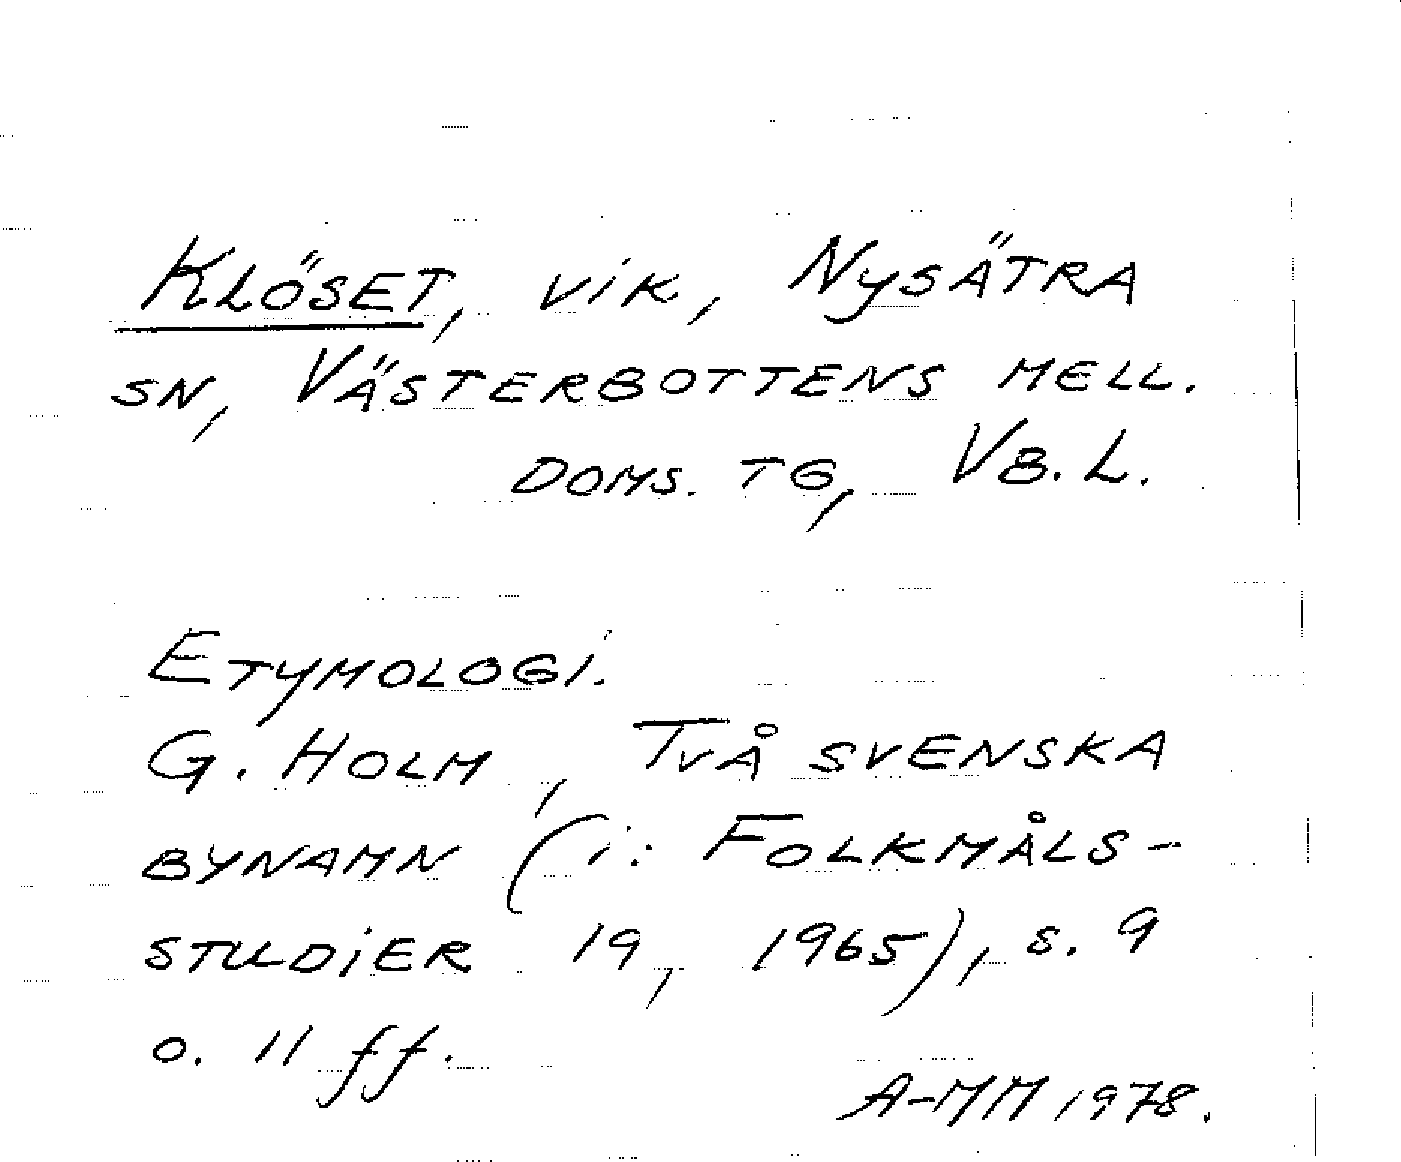 Klöset, vik, Nysätra
sn, Västerbottens mell.
doms. tg, Vb. L.
Etymologi.
G. Holm, Två svenska
bynamn (i: Folkmåls-
studier 19, 1965), s. 9
o. 11 ff.
A-MM 1978.